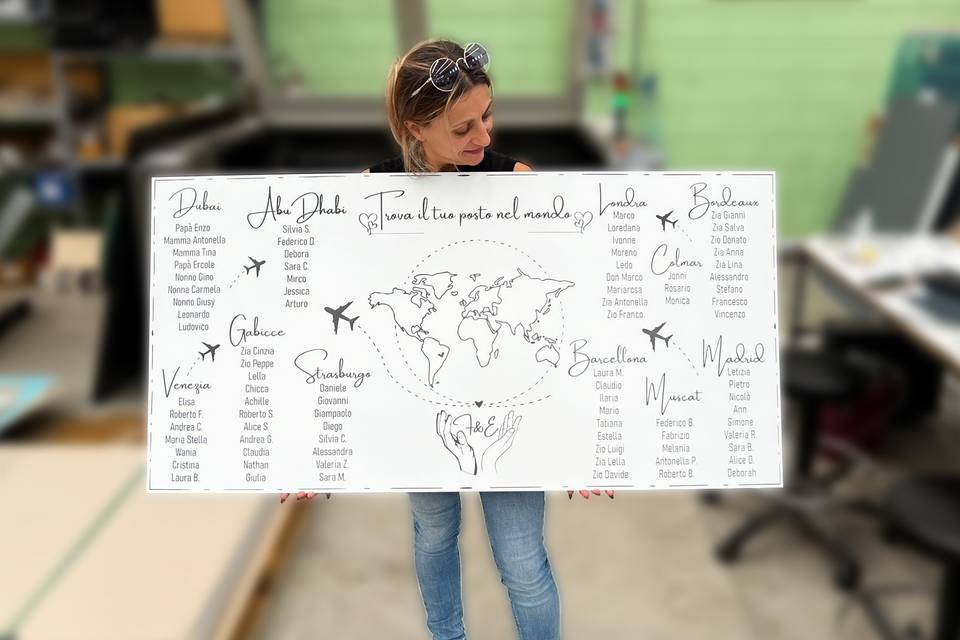 Trova il tuo posto nel mondo
Dubai
Papà Enzo
Mamma Antonella
Mamma Tina
Papà Ercole
Nonno Gino
Nonna Carmela
Nonno Giusy
Leonardo
Ludovico
Abu Dhabi
Silvia S.
Federico D.
Debora
Sara C.
Mirco
Jessica
Arturo
Venezia
Elisa
Roberto F.
Andrea C.
Maria Stella
Wania
Cristina
Laura B.
Gabicce
Zia Cinzia
Zio Peppe
Lella
Chicca
Achille
Roberto S.
Alice S.
Andrea G.
Claudia
Nathan
Giulia
Strasburgo
Daniele
Giovanni
Giampaolo
Diego
Silvia C.
Alessandra
Valeria Z.
Sara M.
Londra
Marco
Loredana
Ivonne
Moreno
Ledo
Don Marco
Mariarosa
Zia Antonella
Zio Franco
Colmar
Jonni
Rosario
Monica
Bordeaux
Zia Gianni
Zia Salva
Zio Donato
Zia Anna
Zia Lina
Alessandro
Stefano
Francesco
Vincenzo
Barcellona
Laura M.
Claudio
Ilaria
Mario
Tatiana
Estella
Zio Luigi
Zia Lella
Zio Davide
Muscat
Federico B.
Fabrizio
Melania
Antonella P.
Roberto B.
Madrid
Letizia
Pietro
Nicolò
Ann
Simone
Valeria R.
Sara B.
Alice D.
Deborah